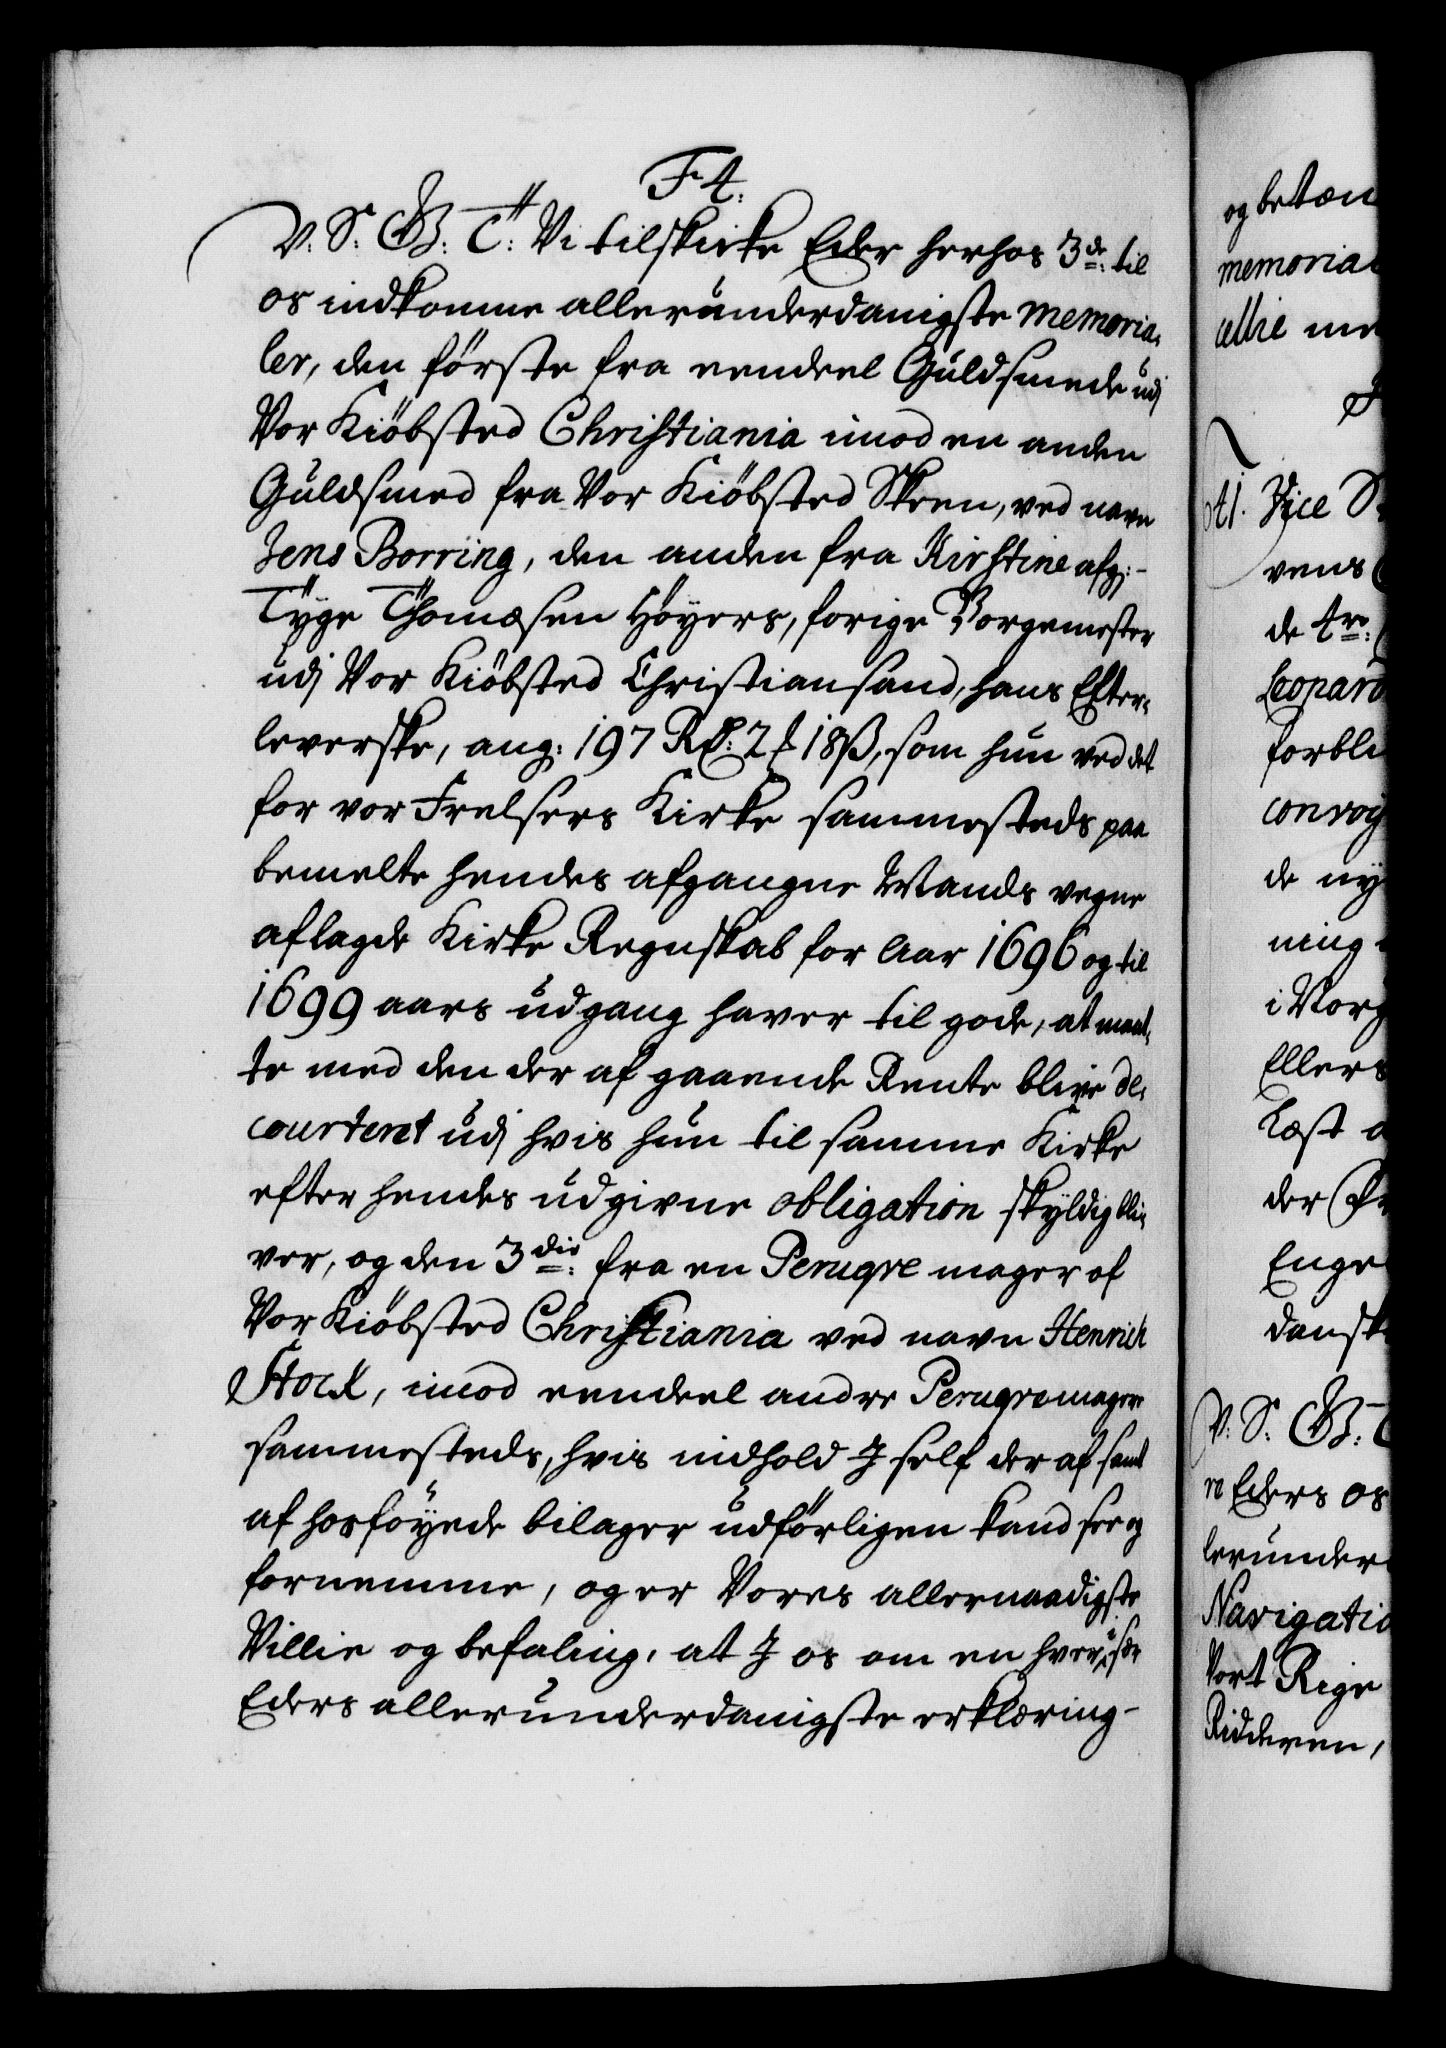 F 4.
V. S. G. T. Vi tilskicke Eder herhos 3de. til
os indkomne allerunderdanigste memoria-
ler, den förste fra eendeel Guldsmede udj
Vor Kiöbsted Christiania imod en anden
Guldsmed fra Vor Kiöbsted Skeen, ved navn
Jens Borring, den anden fra Kirstine afg:
Tÿge Thomæsen Höyers, forige Borgemester
udj Vor Kiöbsted Christiansand, hans Efter-
leverske, ang: 197 Rd: 2 ₰ 18 ß, som hun ved det
for vor Frelsers Kirke sammesteds paa
bemelte hendes afgangne Mands vegne
aflagde Kirke Regnskab for Aar 1696 og til
1699 aars udgang haver til gode, at maat-
te med den der af gaaende Rente blive de-
courteret udj hvis hun til samme Kirke
efter hendes udgivne obligation skyldig bli-
ver, og den 3die. fra en Peruqve mager af
Vor Kiöbsted Christiania ved navn Henrich
Stock, imod eendeel andre Peruqvemagere
sammesteds, hvis indhold I self der af samt
af hosföyede bilager udförligen kand see og
fornemme, og er Vores allernaadigste
Villie og befaling, at I os om en hver især
Eders allerunderdanigste erklæring
og betæn
memorial
ellie me
Vice S
vens
de 4re.
Leopard
forbli
convoy
de ny
ning
i Norg
Ellers
Læst
der
Enge
dansk
V. S. G. T
re Eders os
lerunder
Navigatio
Vort Rige
Ridderen,